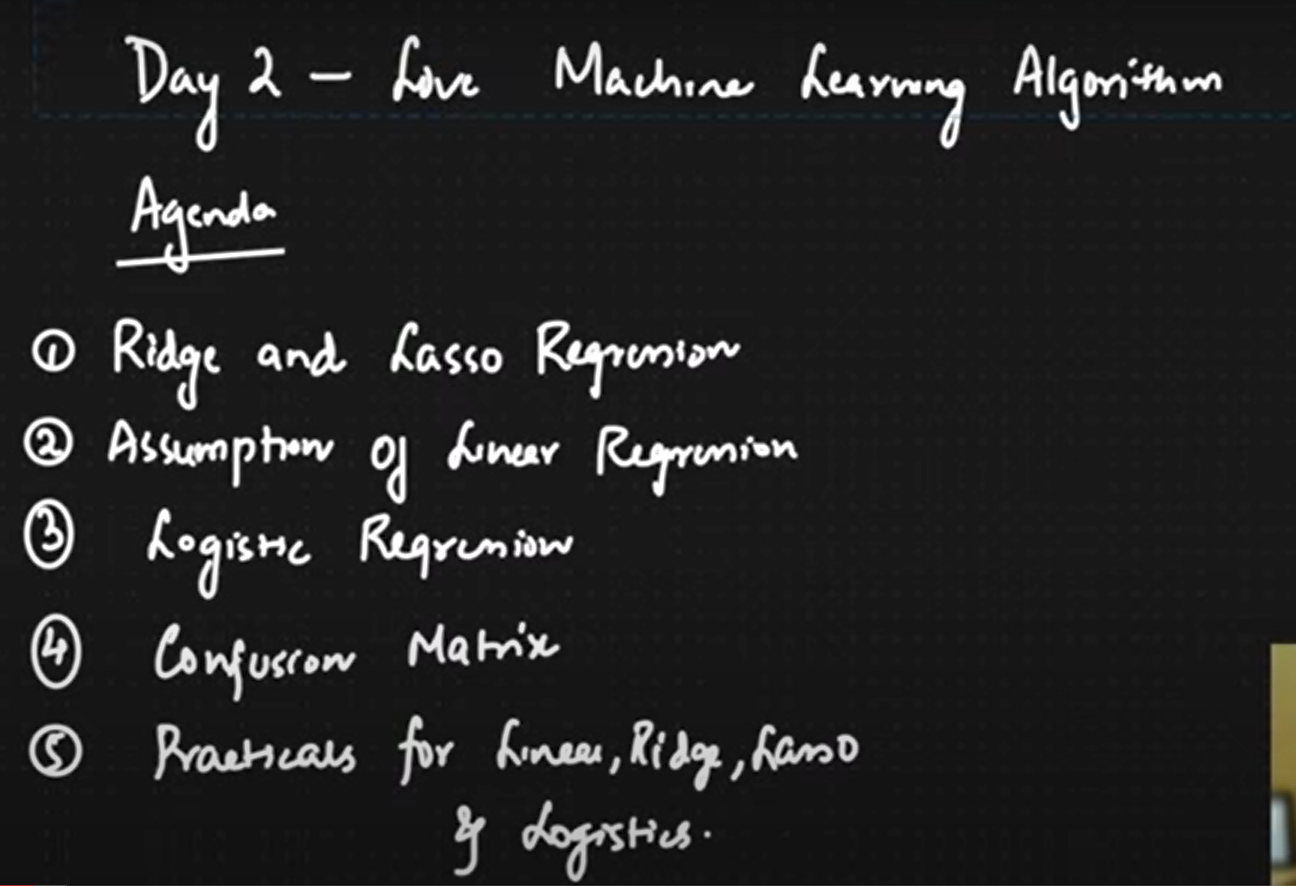 Day 2 – Live Machine Learning Algorithm
Agenda
① Ridge and Lasso Regression
② Assumption of Linear Regression
③ Logistic Regression
④ Confusion Matrix
⑤ Practicals for Linear, Ridge, Lasso
& Logistics.